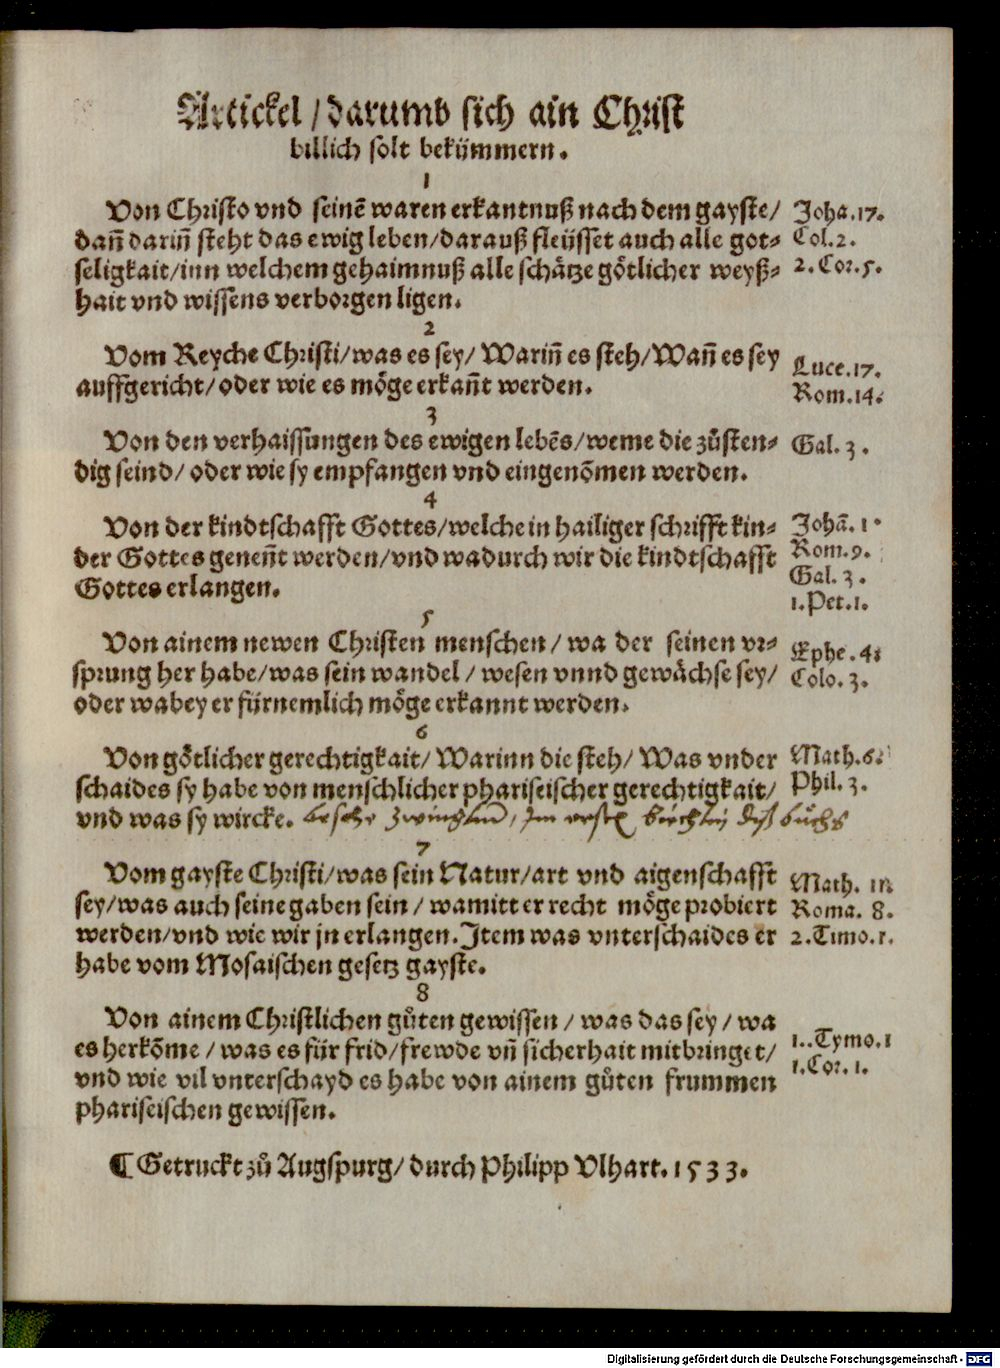 Artickel / darumb sich ain Christ
billich solt bekümmern.
1
Von Christo vnd seinē waren erkantnuß nach dem gayste/ Joha.17.
dañ dariñ steht das ewig leben/darauß fleüsset auch alle got⸗ Col.2.
seligkait/inn welchem gehaimnuß alle schätze götlicher weyß⸗ 2.Cor.5.
hait vnd wissens verborgen ligen.
2
Vom Reyche Christi/was es sey/ Wariñ es steh/Wañ es sey Luce.17.
auffgericht/oder wie es möge erkañt werden. Rom.14.
3
Von den verhaissungen des ewigen lebēs/weme die zůsten⸗ Gal.3.
dig seind/ oder wie sy empfangen vnd eingenōmen werden.
4
Von der kindtschafft Gottes/welche in hailiger schrifft kin⸗ Johā.1.
der Gottes geneñt werden/vnd wadurch wir die kindtschafft Rom.9.
Gottes erlangen. Gal.3.
1.Pet.1.
5
Von ainem newen Christen menschen / wa der seinen vr⸗ Ephe.4.
sprung her habe/was sein wandel / wesen vnnd gewächse sey/ Colo.3.
oder wabey er fürnemlich möge erkannt werden.
6
Von götlicher gerechtigkait/ Warinn die steh/ Was vnder Math.6.
schaides sy habe von menschlicher phariseischer gerechtigkait/ Phil.3.
vnd was sy wircke. im büchs
7
Vom gayste Christi/was sein Natur/art vnd aigenschafft Math.
sey/was auch seine gaben sein / wamitt er recht möge probiert Roma. 8.
werden/vnd wie wir jn erlangen. Item was vnterschaides er 2.Timo.1.
habe vom Mosaischen gesetz gayste.
8
Von ainem Christlichen gůten gewissen / was das sey / wa
es herkōme / was es für frid/frewde vñ sicherhait mitbringet/ 1.Tymo.1
vnd wie vil vnterschayd es habe von ainem gůten frummen 1.Cor.1.
phariseischen gewissen.
¶ Getruckt zů Augspurg/ durch Philipp Vlhart. 1533.
Digitalisierung gefördert durch die Deutsche Forschungsgemeinschaft - DFG